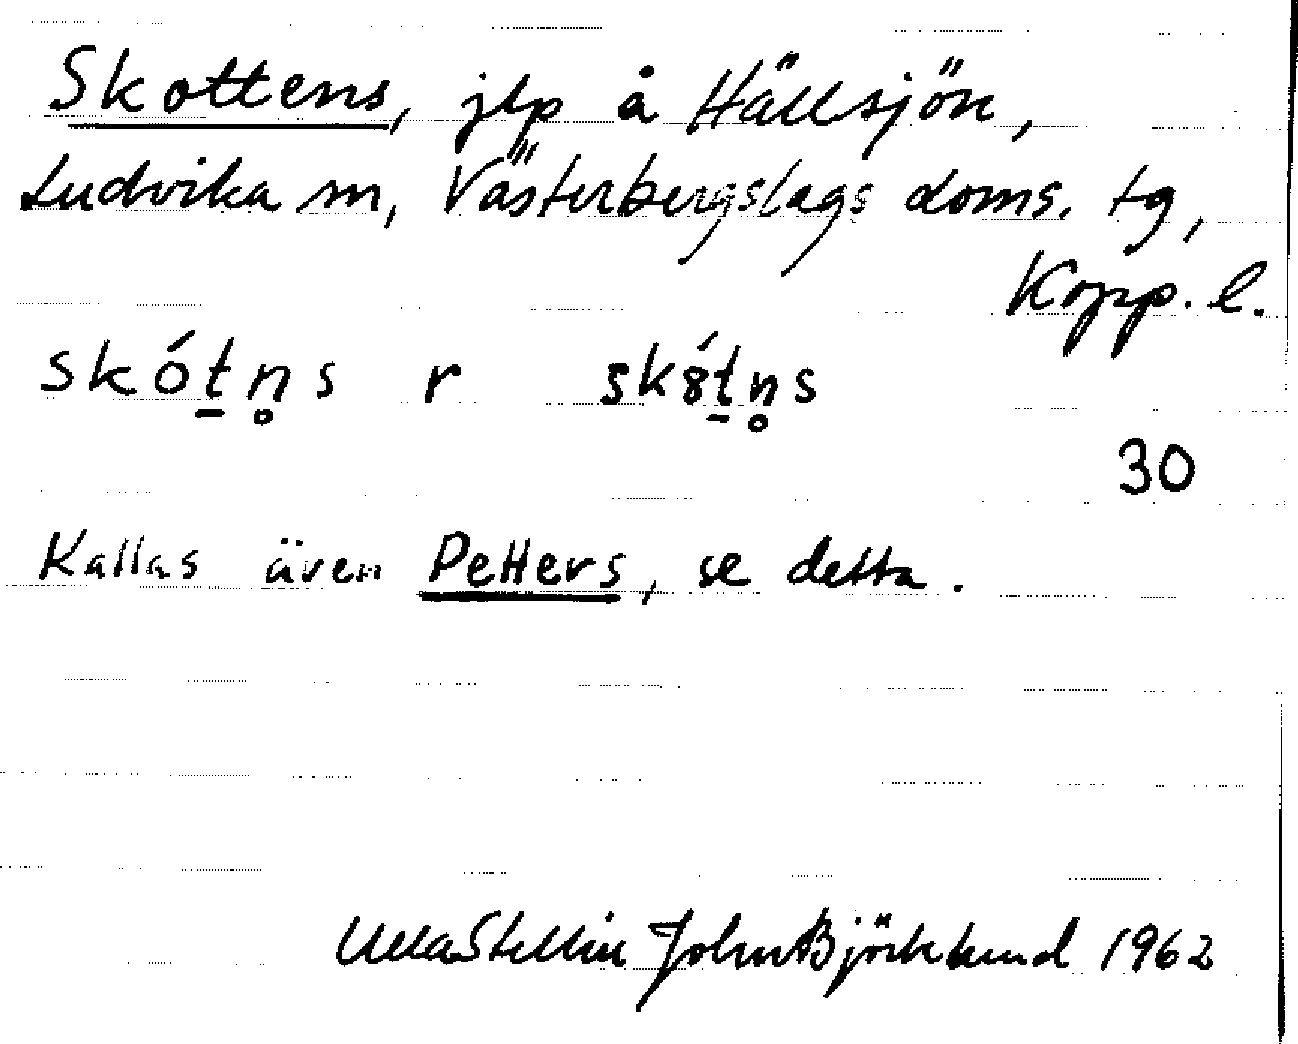 Skottens, jlp å Hällsjön,
Ludvika sn, Västerbergslags doms. tg,
Kopp. l.
skót̲n̥s r sk8́t̲n̥s
30
Kallas även Petters, se detta.
Ulla Stellin John Björklund 1962